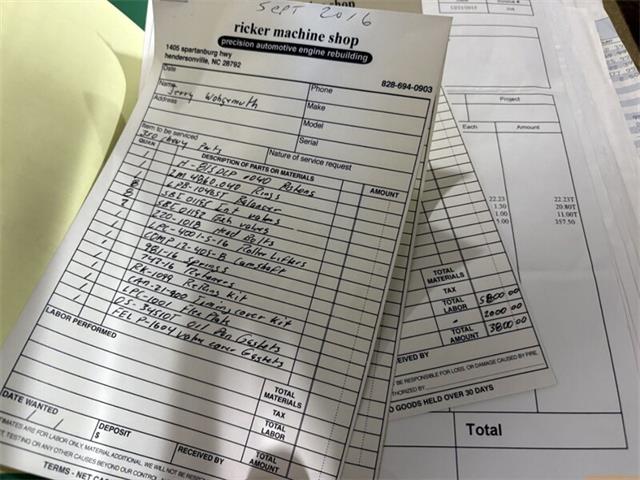 SEPT 2016
ricker machine shop
precision automotive engine rebuilding
1405 spartanburg hwy
hendersonville, NC 28792
828-694-0903
Date
Phone
Name Jerry Wohgemuth
Make
Address
Model
Serial
Item to be serviced
Nature of service request
350 Chevy Parts
QUAN.
DESCRIPTION OF PARTS OR MATERIALS
AMOUNT
1 H- +040 Pistons
1 2M 4060.040 Rings
1 Balancer
8 SBI 01151 Int valves
8 SBI 01152 Exh valves
220-101B Head Bolts
1 Roller Lifters
1 COMP 12-405-8 Camshaft
1 981-16 Springs
1 742-16 Retainers
1 RK-1099 ReRing Kit
1 Timing Cover Kit
1 Flex Plate
1 OS-34510T Oil Pan Gaskets
1 FEL P-1604 valve cover Gaskets
LABOR PERFORMED
TOTAL MATERIALS
TAX
TOTAL LABOR
TOTAL AMOUNT
DATE WANTED
DEPOSIT
$
RECEIVED BY
TIMATES ARE FOR LABOR ONLY, MATERIAL ADDITIONAL. WE WILL NOT BE RESPONSIBLE
T, TESTING OR ANY OTHER CAUSES BEYOND OUR CONTROL.
TERMS - NET CA
TOTAL MATERIALS
TAX
TOTAL LABOR 5800 00
2000 00
TOTAL AMOUNT 3800 00
EIVED BY
BE RESPONSIBLE FOR LOSS, OR DAMAGE CAUSED BY FIRE,
THORIZED BY
GOODS HELD OVER 30 DAYS
Date
Invoice #
Project
Each
Amount
22.23 22.23T
1.30 20.80T
1.00 11.00T
5.00 357.50
Total